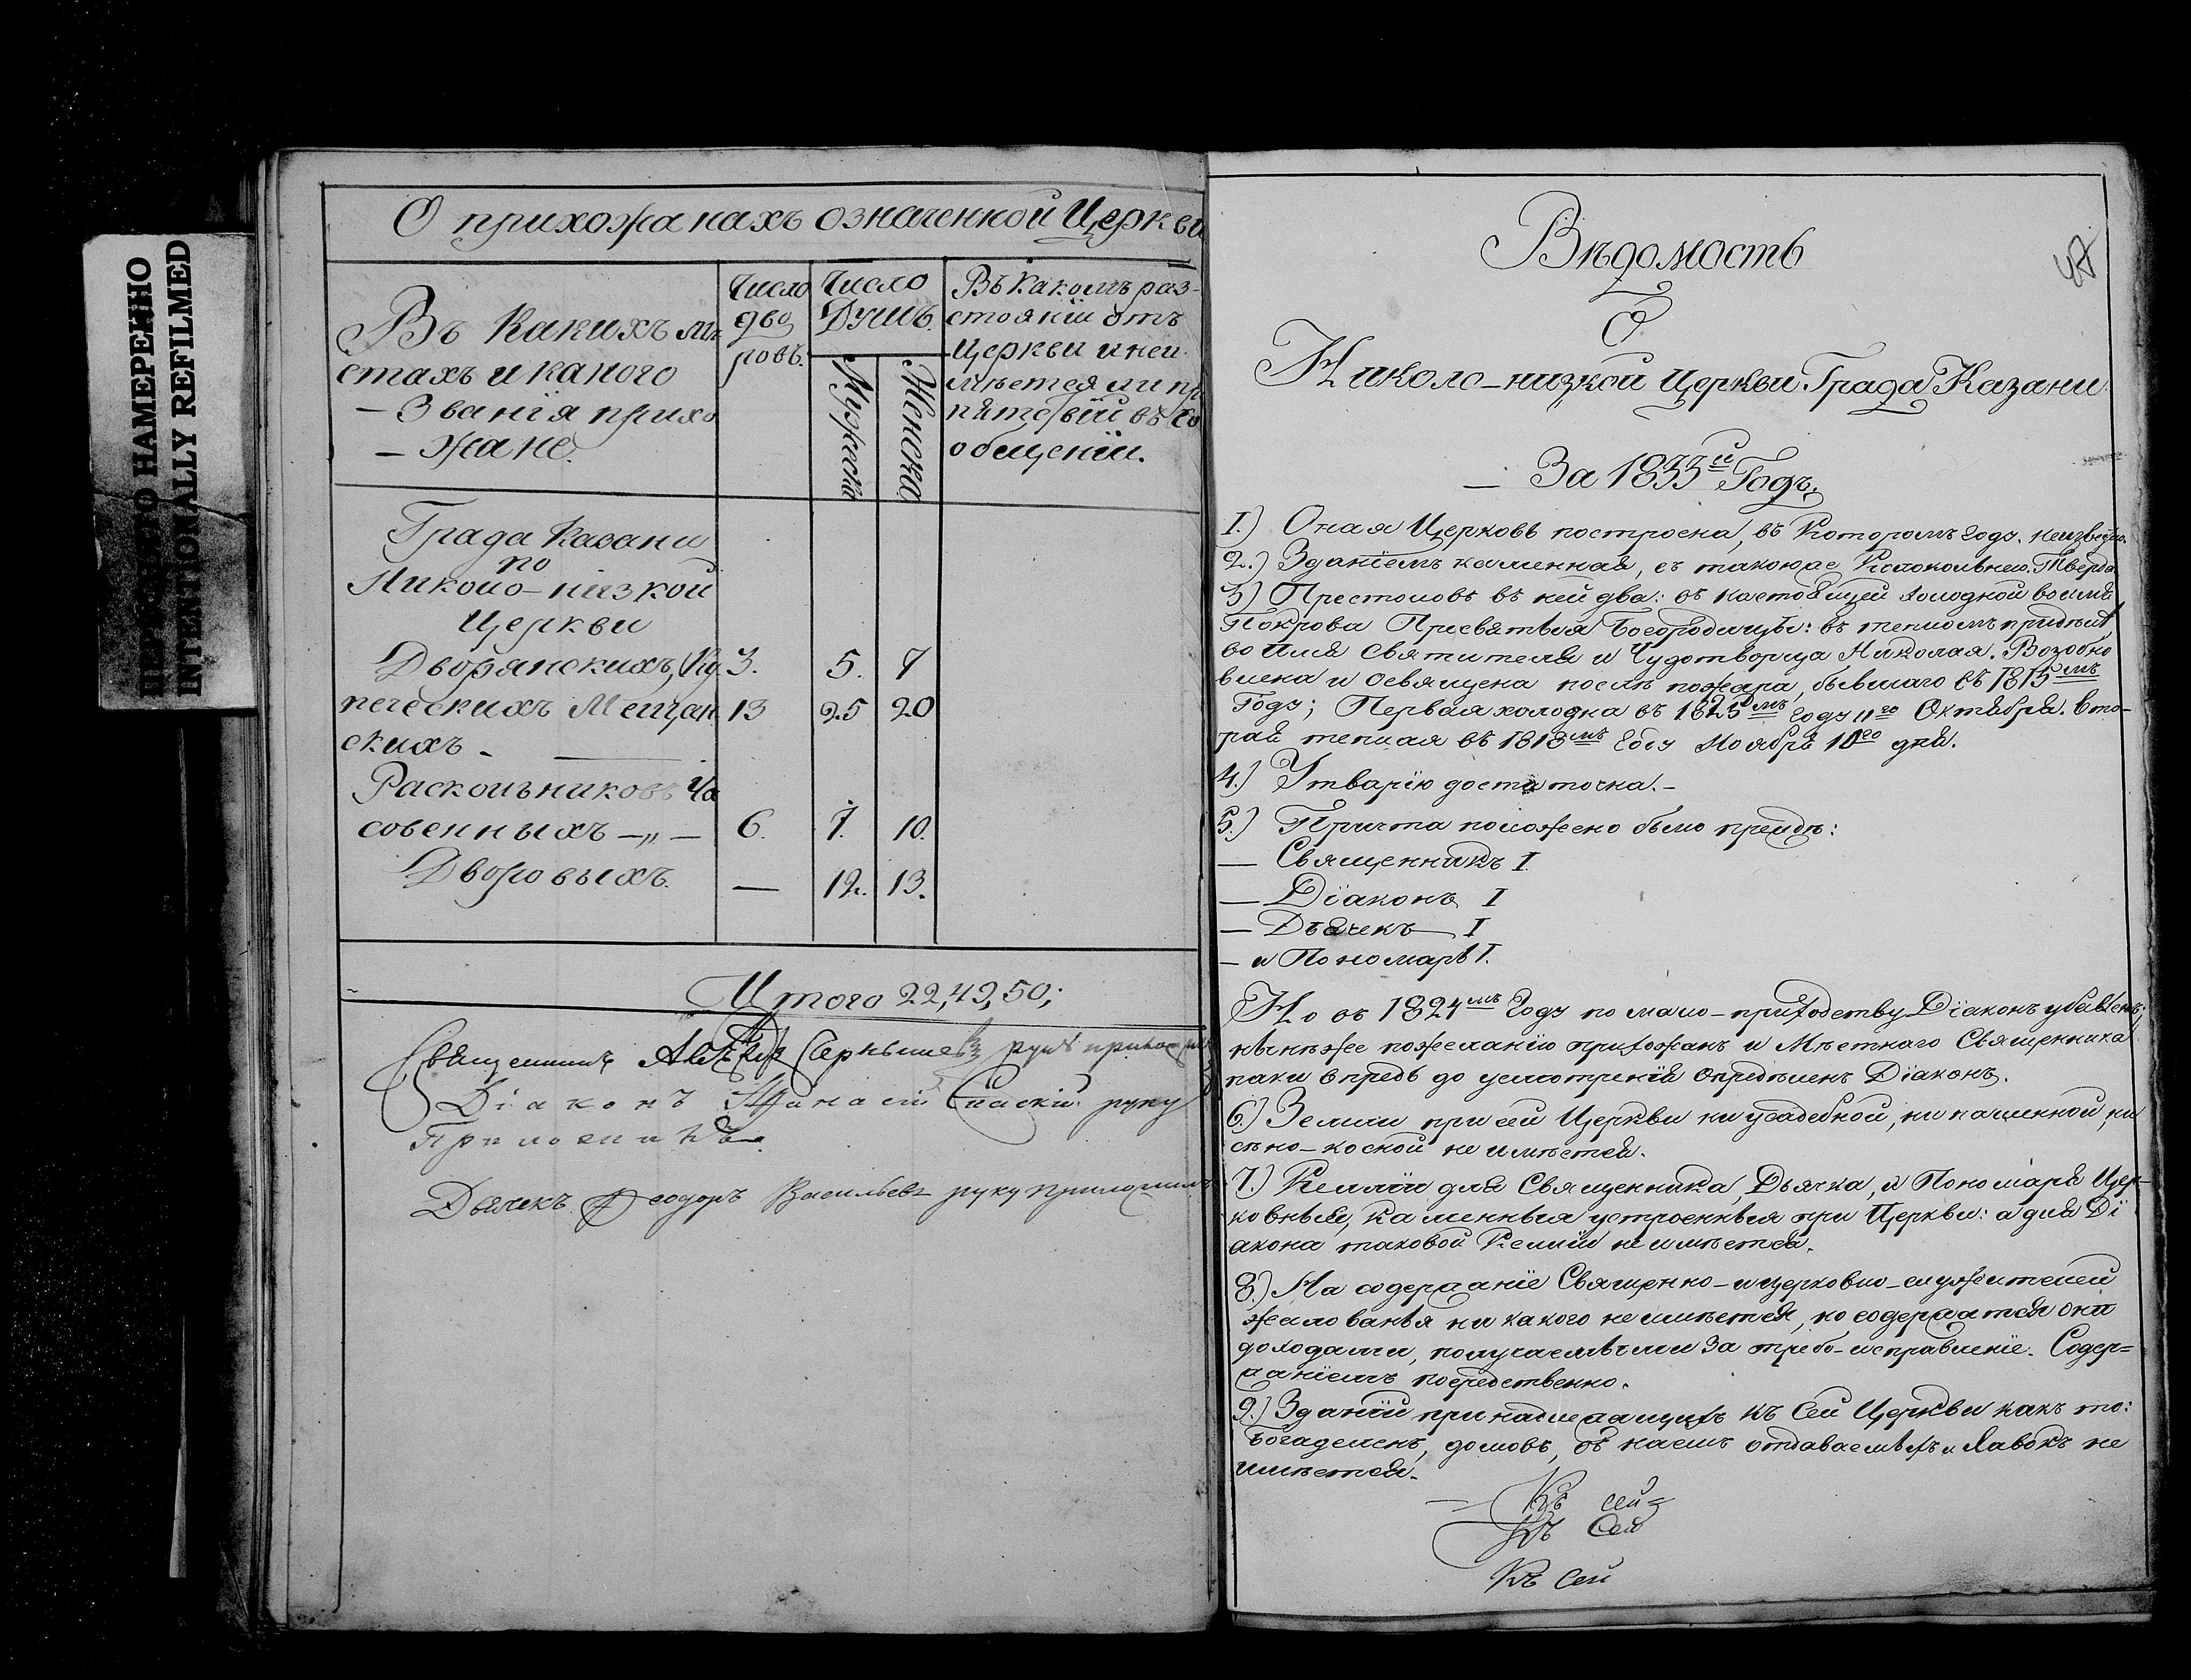 ПЕРЕСНЯТО НАМЕРЕННО
INTENTIONALLY REFILMED
О прихожанахъ означенной Церкви
Въ какихъ мѣ
стахъ и какого
— Званія прихо
— жане.
Число
дво
ровъ.
Число
Душъ.
Мужеска
Женска
Въ какомъ раз-
стояніи отъ
Церкви и неи
мѣется ли пр
пятствій въ со
общеніи.
Града Казани
по
Николо-низкой
Церкви
Дворянскихъ, Ку. 3. 5. 7
печескихъ Мещан. 13 25 20
скихъ -
Раскольниковъ Ча
совенныхъ —„— 6. 7. 10.
Дворовыхъ. — 12. 13.
Итого 22, 49, 50;
Священникъ руку
Діаконъ Афанасій Спаскій руку
Приложилъ
Дьячекъ Феодоръ Васильевъ руку приложилъ
47
Вѣдомость
О
Николо-низкой Церкви Града Казани
— За 1833й Годъ.
1.) Оная Церковь построена, въ котором году, неизвѣстно.
2.) Зданіемъ каменная, съ таковою же Колокольнею. Тверда
3) Престоловъ въ ней два: въ настоящей холодной во имя
Покрова Пресвятыя Богородицы: въ тепломъ придѣлѣ
во имя Святителя и Чудотворца Николая. Возобно
влена и освящена послѣ пожара, бывшаго въ 1815мъ
Году; Первая холодна въ 1825мъ году 11го Октября. Вто-
рая теплая въ 1818мъ году Ноября 10го дня.
4.) Утварію достаточна.-
5.) Причта положено было прежде:
— Священникъ 1.
— Діаконъ 1
— Дьячекъ — 1
— и Пономарь 1.
Но въ 1824мъ Году по мало-приходству Діаконъ убавленъ;
нынѣ же по желанію прихожанъ и Мѣстнаго Священника
паки впредь до усмотренія опредѣленъ Діаконъ.
6.) Земли при сей Церкви ни усадебной, ни пашенной, ни
сѣно-косной не имѣется.
7.) Келліи для Священника, Дьячка, и Пономаря Цер-
ковныя, каменныя устроенныя при Церкви: а для Ді
акона таковой Келліи не имѣется.
8.) На содержаніе Священно-и церковно-служителей
жалованья ни какого не имѣется, но содержатся они
доходами, получаемыми за требо-исправленіе. Содер=
жаніемъ посредственно.
9.) Зданій принадлежащихъ къ сей Церкви какъ то:
Богаделенъ, домовъ, въ наемъ отдаваемыхъ и Лавокъ не
имѣется.
— Къ сей
Къ Сей
Къ Сей